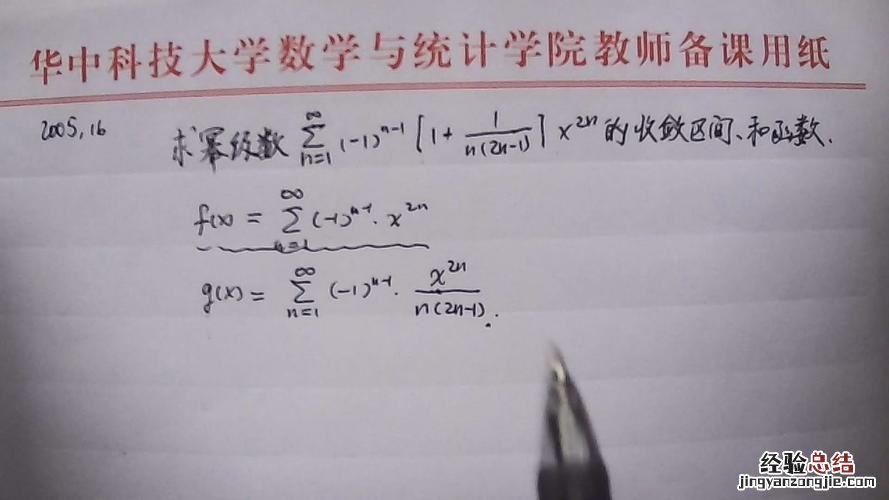 华中科技大学数学与统计学院教师备课用纸
2005,16 求幂级数 ∑_{n=1}^{∞} (-1)^{n-1} [1+ 1/(n(2n-1))] x^{2n} 的收敛区间、和函数.
f(x) = ∑_{n=1}^{∞} (-1)^{n-1} · x^{2n}
g(x) = ∑_{n=1}^{∞} (-1)^{n-1} · x^{2n}/(n(2n-1)).
经验总结
jingyanzongjie.com